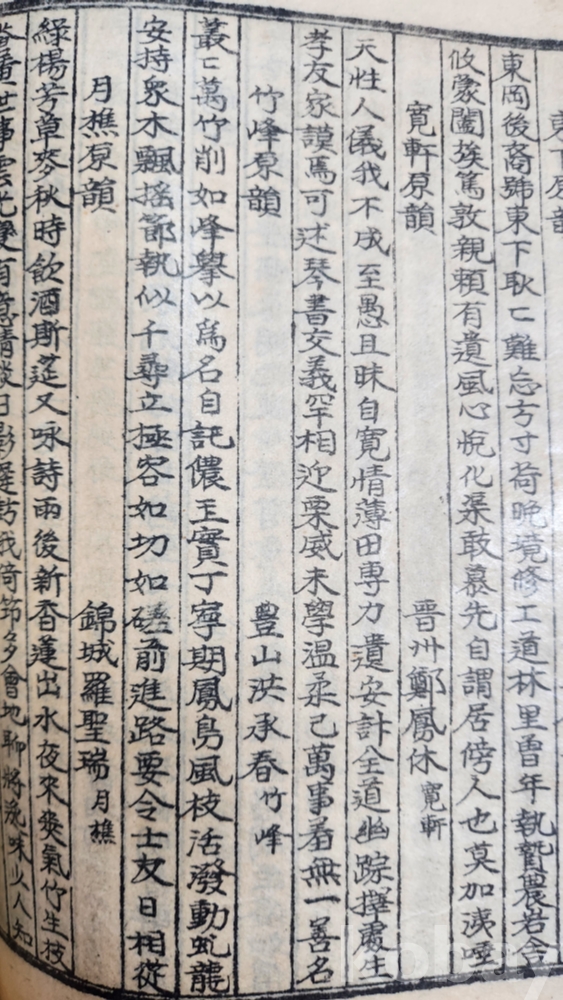 東下原韻
東岡後裔號東下耿〻難忘方寸荷晩境修工道林里曾年執贄農岩舍
攸蒙闔族篤敦親賴有遺風心悅化渠敢慕先自謂居傍人也莫加唾
寬軒原韻 晋州鄭鳳休寬軒
天性人儀我不成至愚且昧自寬情薄田專力遺安計全道幽踪擇處生
孝友家謨焉可述琴書交義罕相迎栗威未學溫柔己萬事羞無一善名
竹峰原韻 豊山洪承春竹峰
叢〻萬竹削如峰擧以爲名自託儂玉實丁寧期鳳鳥風枝活潑動虬龍
安持衆木飄搖節執似千尋立極容如切如磋前進路要令士友日相從
月樵原韻 錦城羅聖瑞月樵
綠楊芳草麥秋時飮酒斯筵又咏詩雨後新香蓮出水夜來爽氣竹生枝
世事雲光變有意情談日影遲訪我倚節多會地聊將滋味少人知